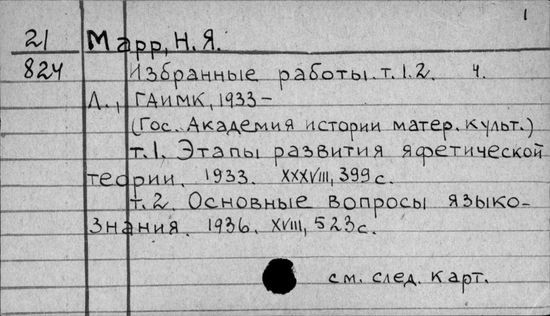 1
21 Марр, Н. Я.
824 Избранные работы. т. 1. 2. 4.
Л., ГАИМК, 1933-
(Гос. Академия истории матер. культ.)
т. 1. Этапы развития яфетической
теории. 1933. XXXVIII, 399 с.
т. 2. Основные вопросы языко-
знания. 1936. XVIII, 523 с.
см. след. карт.